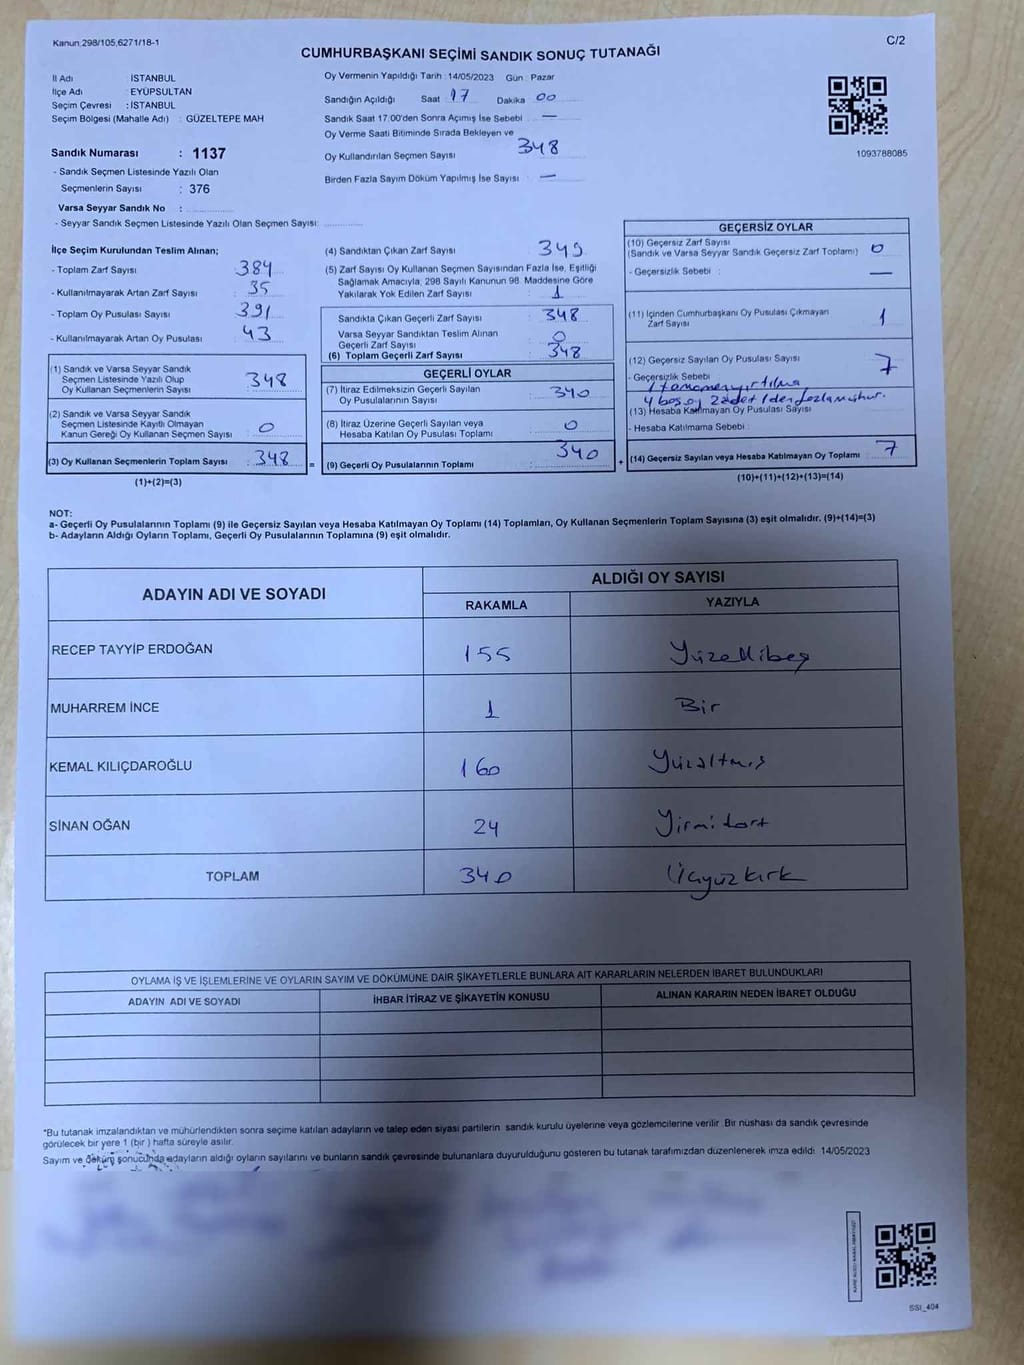 Kanun:298/105,6271/18-1
C/2
CUMHURBAŞKANI SEÇİMİ SANDIK SONUÇ TUTANAĞI
İl Adı : İSTANBUL
İlçe Adı : EYÜPSULTAN
Seçim Çevresi : İSTANBUL
Seçim Bölgesi (Mahalle Adı) : GÜZELTEPE MAH
Sandık Numarası : 1137
- Sandık Seçmen Listesinde Yazılı Olan
Seçmenlerin Sayısı : 376
Varsa Seyyar Sandık No :
- Seyyar Sandık Seçmen Listesinde Yazılı Olan Seçmen Sayısı:
Oy Vermenin Yapıldığı Tarih : 14/05/2023 Gün : Pazar
Sandığın Açıldığı Saat 17 Dakika 00
Sandık Saat 17:00'den Sonra Açımış İse Sebebi : —
Oy Verme Saati Bitiminde Sırada Bekleyen ve
Oy Kullandırılan Seçmen Sayısı 348
Birden Fazla Sayım Döküm Yapılmış İse Sayısı : —
1093788085
İlçe Seçim Kurulundan Teslim Alınan;
- Toplam Zarf Sayısı 384
- Kullanılmayarak Artan Zarf Sayısı : 35
- Toplam Oy Pusulası Sayısı : 391
- Kullanılmayarak Artan Oy Pusulası : 43
(1) Sandık ve Varsa Seyyar Sandık
Seçmen Listesinde Yazılı Olup
Oy Kullanan Seçmenlerin Sayısı : 348
(2) Sandık ve Varsa Seyyar Sandık
Seçmen Listesinde Kayıtlı Olmayan
Kanun Gereği Oy Kullanan Seçmen Sayısı : 0
(3) Oy Kullanan Seçmenlerin Toplam Sayısı : 348
(1)+(2)=(3)
=
(4) Sandıktan Çıkan Zarf Sayısı : 349
(5) Zarf Sayısı Oy Kullanan Seçmen Sayısından Fazla İse, Eşitliği
Sağlamak Amacıyla; 298 Sayılı Kanunun 98. Maddesine Göre
Yakılarak Yok Edilen Zarf Sayısı : 1
Sandıkta Çıkan Geçerli Zarf Sayısı : 348
Varsa Seyyar Sandıktan Teslim Alınan
Geçerli Zarf Sayısı : 0
(6) Toplam Geçerli Zarf Sayısı : 348
GEÇERLİ OYLAR
(7) İtiraz Edilmeksizin Geçerli Sayılan
Oy Pusulalarının Sayısı : 340
(8) İtiraz Üzerine Geçerli Sayılan veya
Hesaba Katılan Oy Pusulası Toplamı : 0
(9) Geçerli Oy Pusulalarının Toplamı : 340
+
GEÇERSİZ OYLAR
(10) Geçersiz Zarf Sayısı
(Sandık ve Varsa Seyyar Sandık Geçersiz Zarf Toplamı) : 0
- Geçersizlik Sebebi : —
(11) İçinden Cumhurbaşkanı Oy Pusulası Çıkmayan
Zarf Sayısı : 1
(12) Geçersiz Sayılan Oy Pusulası Sayısı : 7
- Geçersizlik Sebebi
1 tamamen yırtılma
4 boş oy 2 adet 1 den fazla mühür.
(13) Hesaba Katılmayan Oy Pusulası Sayısı
- Hesaba Katılmama Sebebi :
(14) Geçersiz Sayılan veya Hesaba Katılmayan Oy Toplamı : 7
(10)+(11)+(12)+(13)=(14)
NOT:
a- Geçerli Oy Pusulalarının Toplamı (9) ile Geçersiz Sayılan veya Hesaba Katılmayan Oy Toplamı (14) Toplamları, Oy Kullanan Seçmenlerin Toplam Sayısına (3) eşit olmalıdır. (9)+(14)=(3)
b- Adayların Aldığı Oyların Toplamı, Geçerli Oy Pusulalarının Toplamına (9) eşit olmalıdır.
ADAYIN ADI VE SOYADI
ALDIĞI OY SAYISI
RAKAMLA YAZIYLA
RECEP TAYYİP ERDOĞAN 155 Yüzellibeş
MUHARREM İNCE 1 Bir
KEMAL KILIÇDAROĞLU 160 Yüzaltmış
SİNAN OĞAN 24 Yirmidört
TOPLAM 340 Üçyüzkırk
OYLAMA İŞ VE İŞLEMLERİNE VE OYLARIN SAYIM VE DÖKÜMÜNE DAİR ŞİKAYETLERLE BUNLARA AİT KARARLARIN NELERDEN İBARET BULUNDUKLARI
ADAYIN ADI VE SOYADI İHBAR İTİRAZ VE ŞİKAYETİN KONUSU ALINAN KARARIN NEDEN İBARET OLDUĞU
*Bu tutanak imzalandıktan ve mühürlendikten sonra seçime katılan adayların ve talep eden siyasi partilerin sandık kurulu üyelerine veya gözlemcilerine verilir. Bir nüshası da sandık çevresinde
görülecek bir yere 1 (bir ) hafta süreyle asılır.
Sayım ve döküm sonucunda adayların aldığı oyların sayılarını ve bunların sandık çevresinde bulunanlara duyurulduğunu gösteren bu tutanak tarafımızdan düzenlenerek imza edildi. 14/05/2023
SSI_404